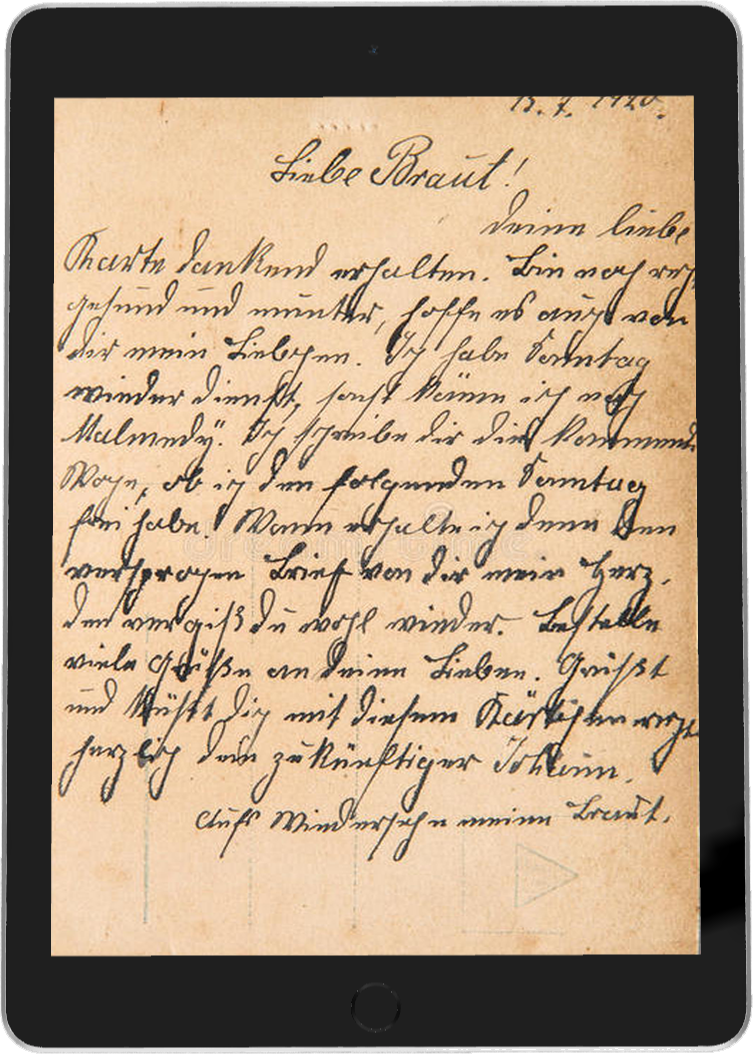 13. 7. 1920.
Liebe Braut!
Deine liebe
Karte dankend erhalten. Bin noch recht
gesund und munter, hoffe es auch von
dir mein Liebchen. Ich habe Sonntag
wieder Dienst, sonst käme ich nach
Malmedy. Ich schreibe dir die kommende
Woche, ob ich den folgenden Sonntag
frei habe. Wann erhalte ich denn den
versprochen Brief von dir mein Herz,
den vergißt du wohl wieder. Bestelle
viele Grüße an deine Lieben. Grüßt
und küßt dich mit diesem Kärtchen recht
herzlich dein zukünftiger Johann.
Aufs Wiedersehn meine Braut.